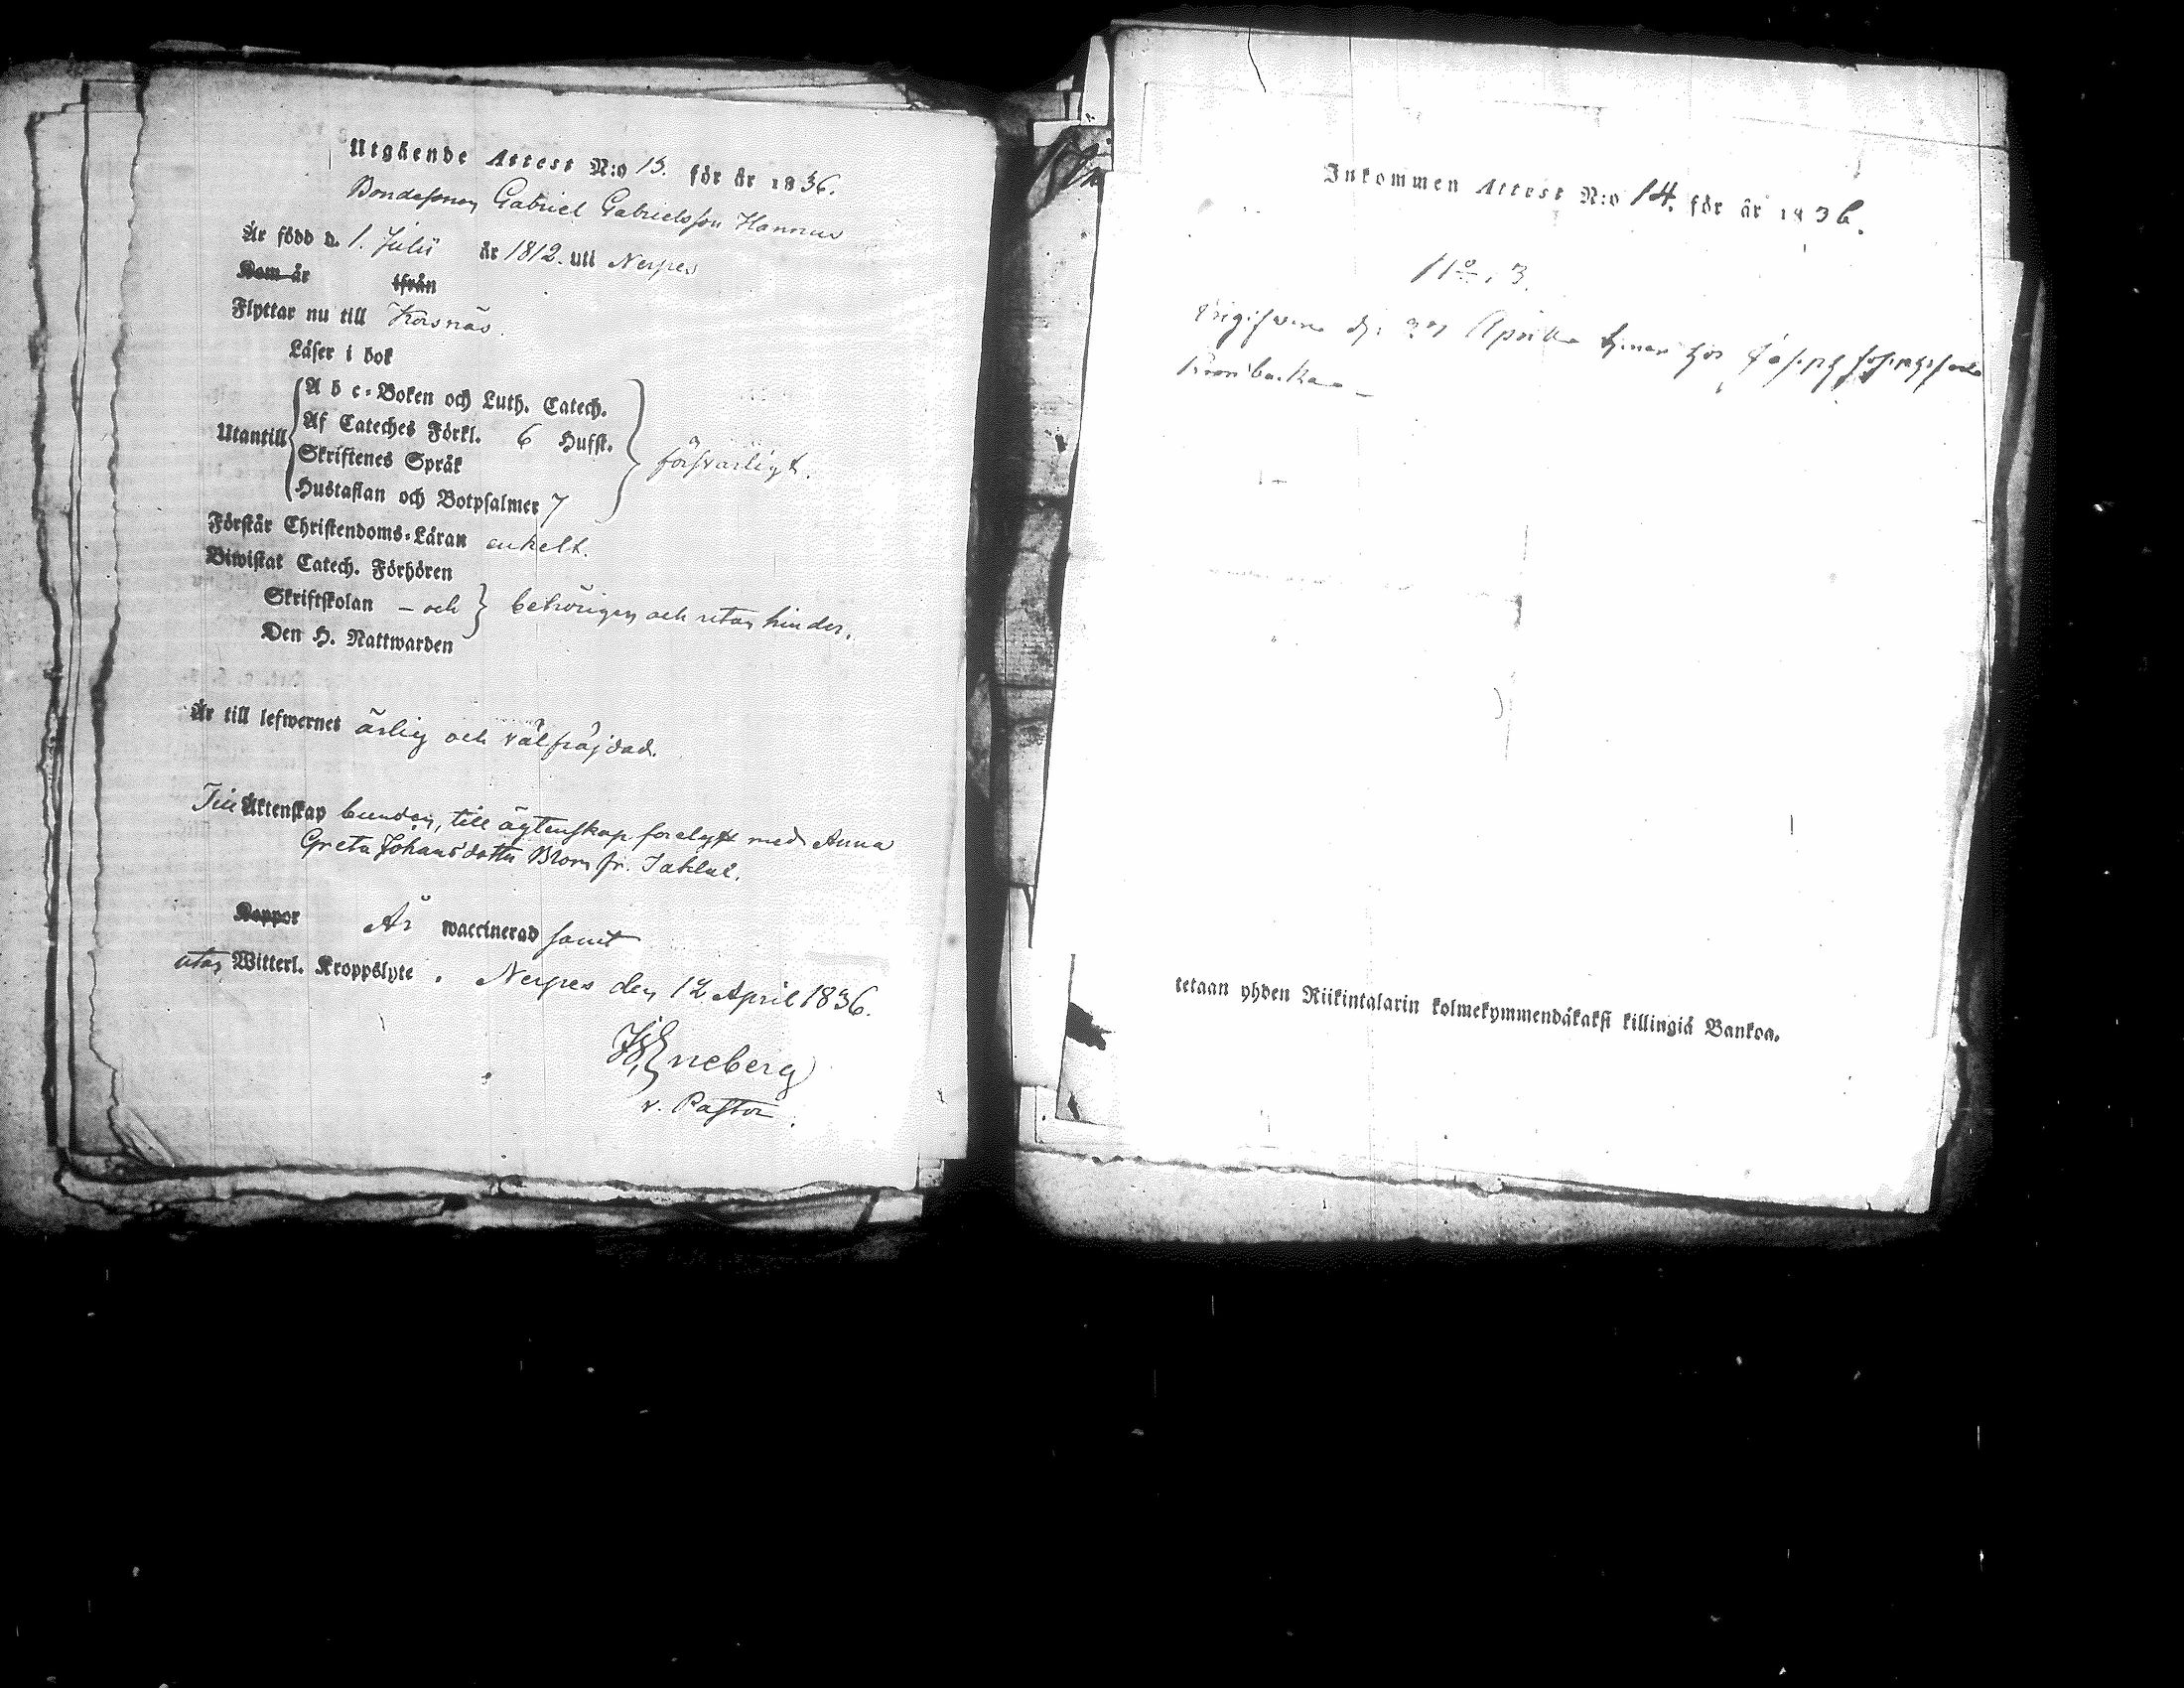 Utgående Attest N:o 13. för år 1836.
Bondesonen Gabriel Gabrielsson Hannus
Är född d. 1. Julii år 1812. uti Nerpes
Kom år ifrån
Flyttar nu till Korsnäs.
Läser i bok
A b c-Boken och Luth. Catech.
Af Cateches Förkl. 6 Hufst.
Utantill
Skriftenes Språk
försvarligt.
Hustaflan och Botpsalmer 7
Förstår Christendoms-Läran enkelt.
Biwistat Catech. Förhören
Skriftskolan – och behörigen och utan hinder.
Den H. Nattwarden
Är till lefwernet ärlig och välfräjdad.
Till Äktenskap bunden, till ägtenskap förelyst med Anna
Greta Johansdotter Blom fr.
Koppor Är waccinerad samt
utan Witterl. Kroppslyte. Nerpes den 12 April 1836.
Eneberg
v. Pastor.
Inkommen Attest N:o 14. för år 1836.
No. 3.
d. 27 Aprill hos Joseph
tetaan yhden Riikintalarin kolmekymmendäkaksi killingiä Bankoa.